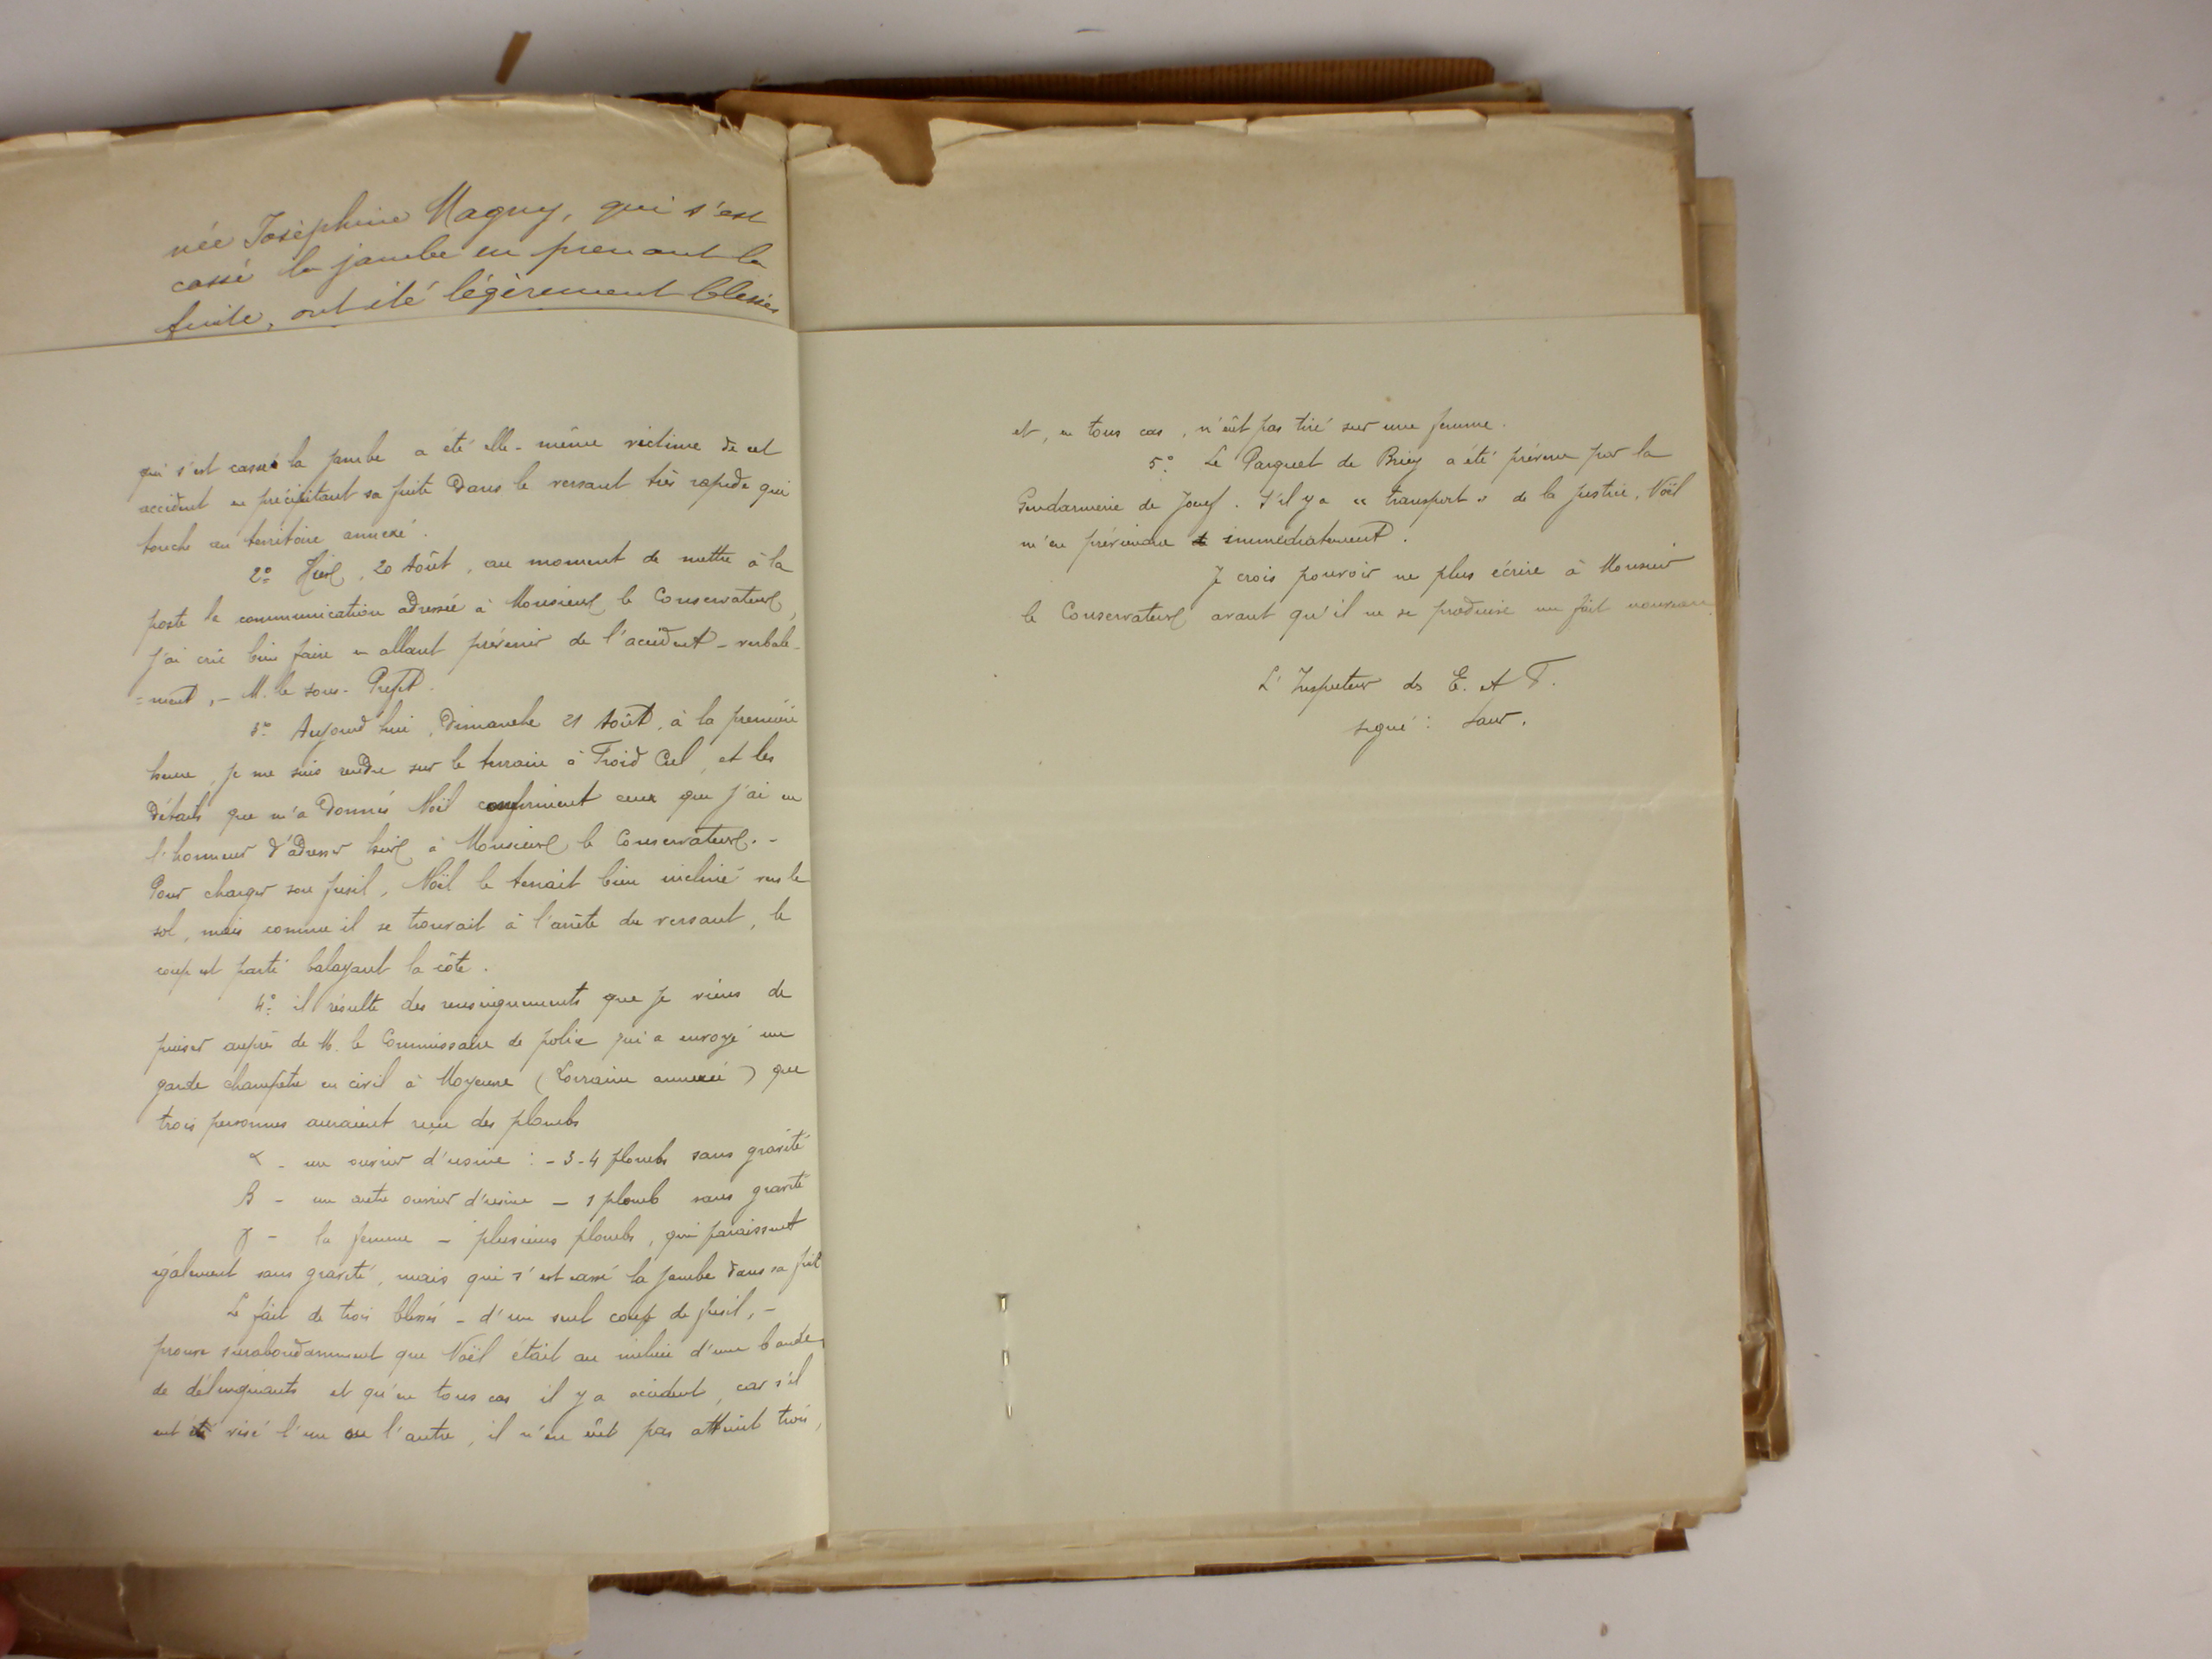 née Joséphine Magny, qui s'est
cassé la jambe en prenant la
fuite, ont été légèrement blessés
qui s'est cassé la jambe a été elle-même victime de cet
accident en précipitant sa fuite dans le versant très rapide qui
touche au territoire annexé.
2° Hier, 20 Août, au moment de mettre à la
poste la communication adressée à Monsieur le Conservateur,
j'ai cru bien faire en allant prévenir de l'accident - verbale-
=ment, - M. le Sous-Préfet.
3° Aujourd'hui, Dimanche 21 Août, à la première
heure, je me suis rendu sur le terrain à Froid Cul, et les
détails que m'a donnés Noël confirment ceux que j'ai eu
l'honneur d'adresser hier à Monsieur le Conservateur. -
Pour charger son fusil, Noël le tenait bien incliné vers le
sol, mais comme il se trouvait à l'arête du versant, le
coup est parti balayant la côte.
4° il résulte des renseignements que je viens de
puiser auprès de M. le Commissaire de police qui a envoyé un
garde champêtre en civil à Moyeuvre (Lorraine annexée) que
trois personnes auraient reçu des plombs
α - un ouvrier d'usine : - 3-4 plombs sans gravité
β - un autre ouvrier d'usine - 1 plomb sans gravité
γ - la femme - plusieurs plombs, qui paraissent
également sans gravité, mais qui s'est cassé la jambe dans sa fuite
Le fait de trois blessés - d'un seul coup de fusil, -
prouve surabondamment que Noël était au milieu d'une bande
de délinquants et qu'en tous cas il y a accident, car s'il
eut visé l'un ou l'autre, il n'en eût pas atteint trois,
et, en tous cas, n'eût pas tiré sur une femme.
5° Le Parquet de Briey a été prévenu par la
Gendarmerie de Joeuf. S'il y a "transport" de la justice, Noël
m'en préviendra immédiatement.
Je crois pouvoir ne plus écrire à Monsieur
le Conservateur avant qu'il ne se produise un fait nouveau.
L'Inspecteur des E. et F.
signé :